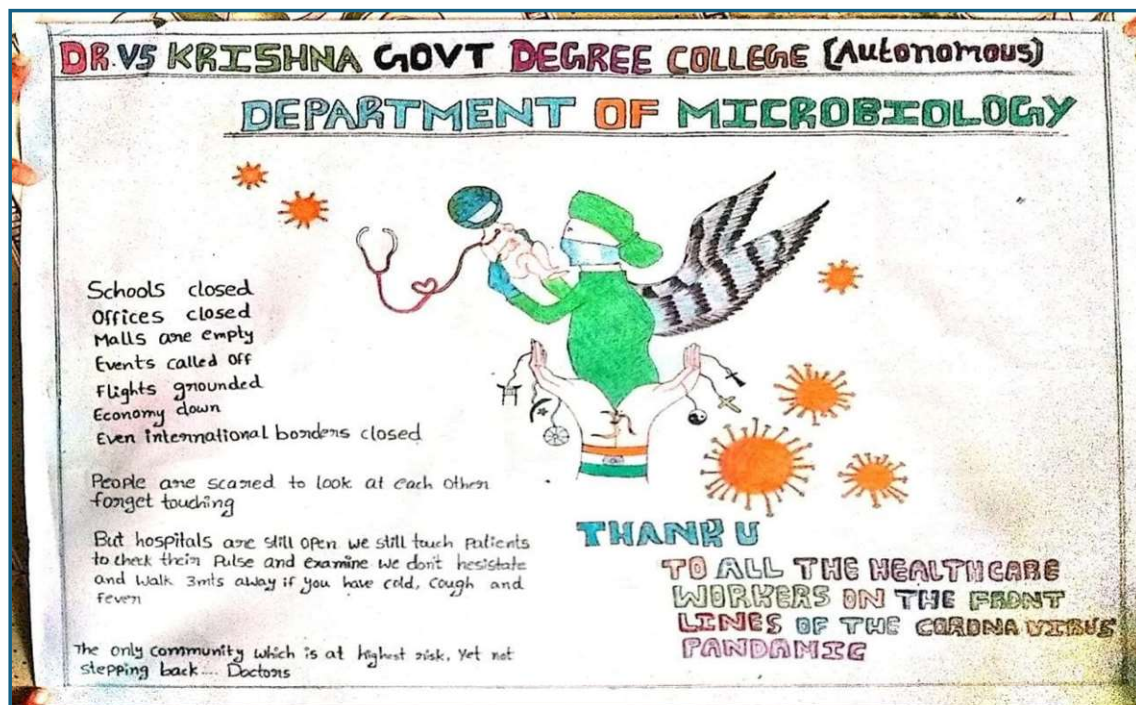 DR.VS KRISHNA GOVT DEGREE COLLEGE (Autonomous)
DEPARTMENT OF MICROBIOLOGY
Schools closed
Offices closed
Malls are empty
Events called off
Flights grounded
Economy down
Even international borders closed
People are scared to look at each other
forget touching
But hospitals are still open we still touch Patients
to check their Pulse and examine we don't hesistate
and Walk 3mts away if you have cold, cough and
fever
The only community which is at highest risk, Yet not
stepping back.... Doctors
THANK U
TO ALL THE HEALTHCARE
WORKERS ON THE FRONT
LINES OF THE CORONA VIRUS
PANDAMIC